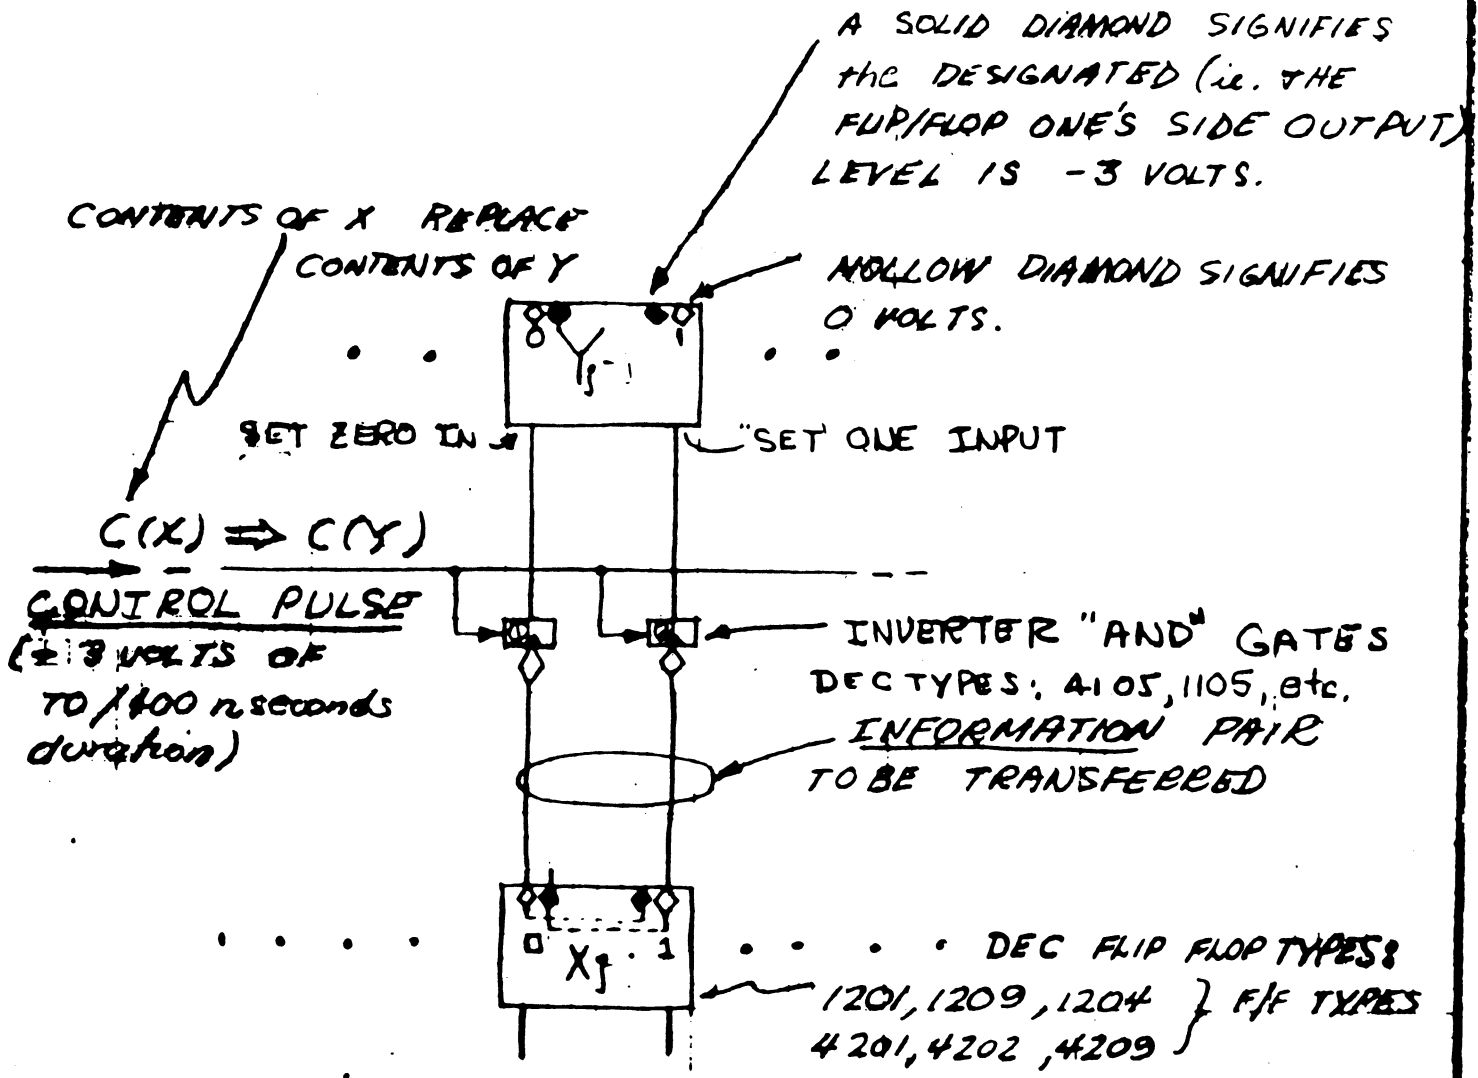 A SOLID DIAMOND SIGNIFIES
the DESIGNATED (ie. THE
FLIP/FLOP ONE'S SIDE OUTPUT)
LEVEL IS -3 VOLTS.
CONTENTS OF X REPLACE
CONTENTS OF Y
HOLLOW DIAMOND SIGNIFIES
0 VOLTS.
0 1
Yj
SET ZERO IN
"SET" ONE INPUT
C(X) ⇒ C(Y)
CONTROL PULSE
(± 3 VOLTS OF
TO 400 nseconds
duration)
INVERTER "AND" GATES
DEC TYPES: 4105, 1105, etc.
INFORMATION PAIR
TO BE TRANSFERRED
0 1
Xj
DEC FLIP FLOP TYPES:
1201, 1209, 1204 } F/F TYPES
4201, 4202, 4209